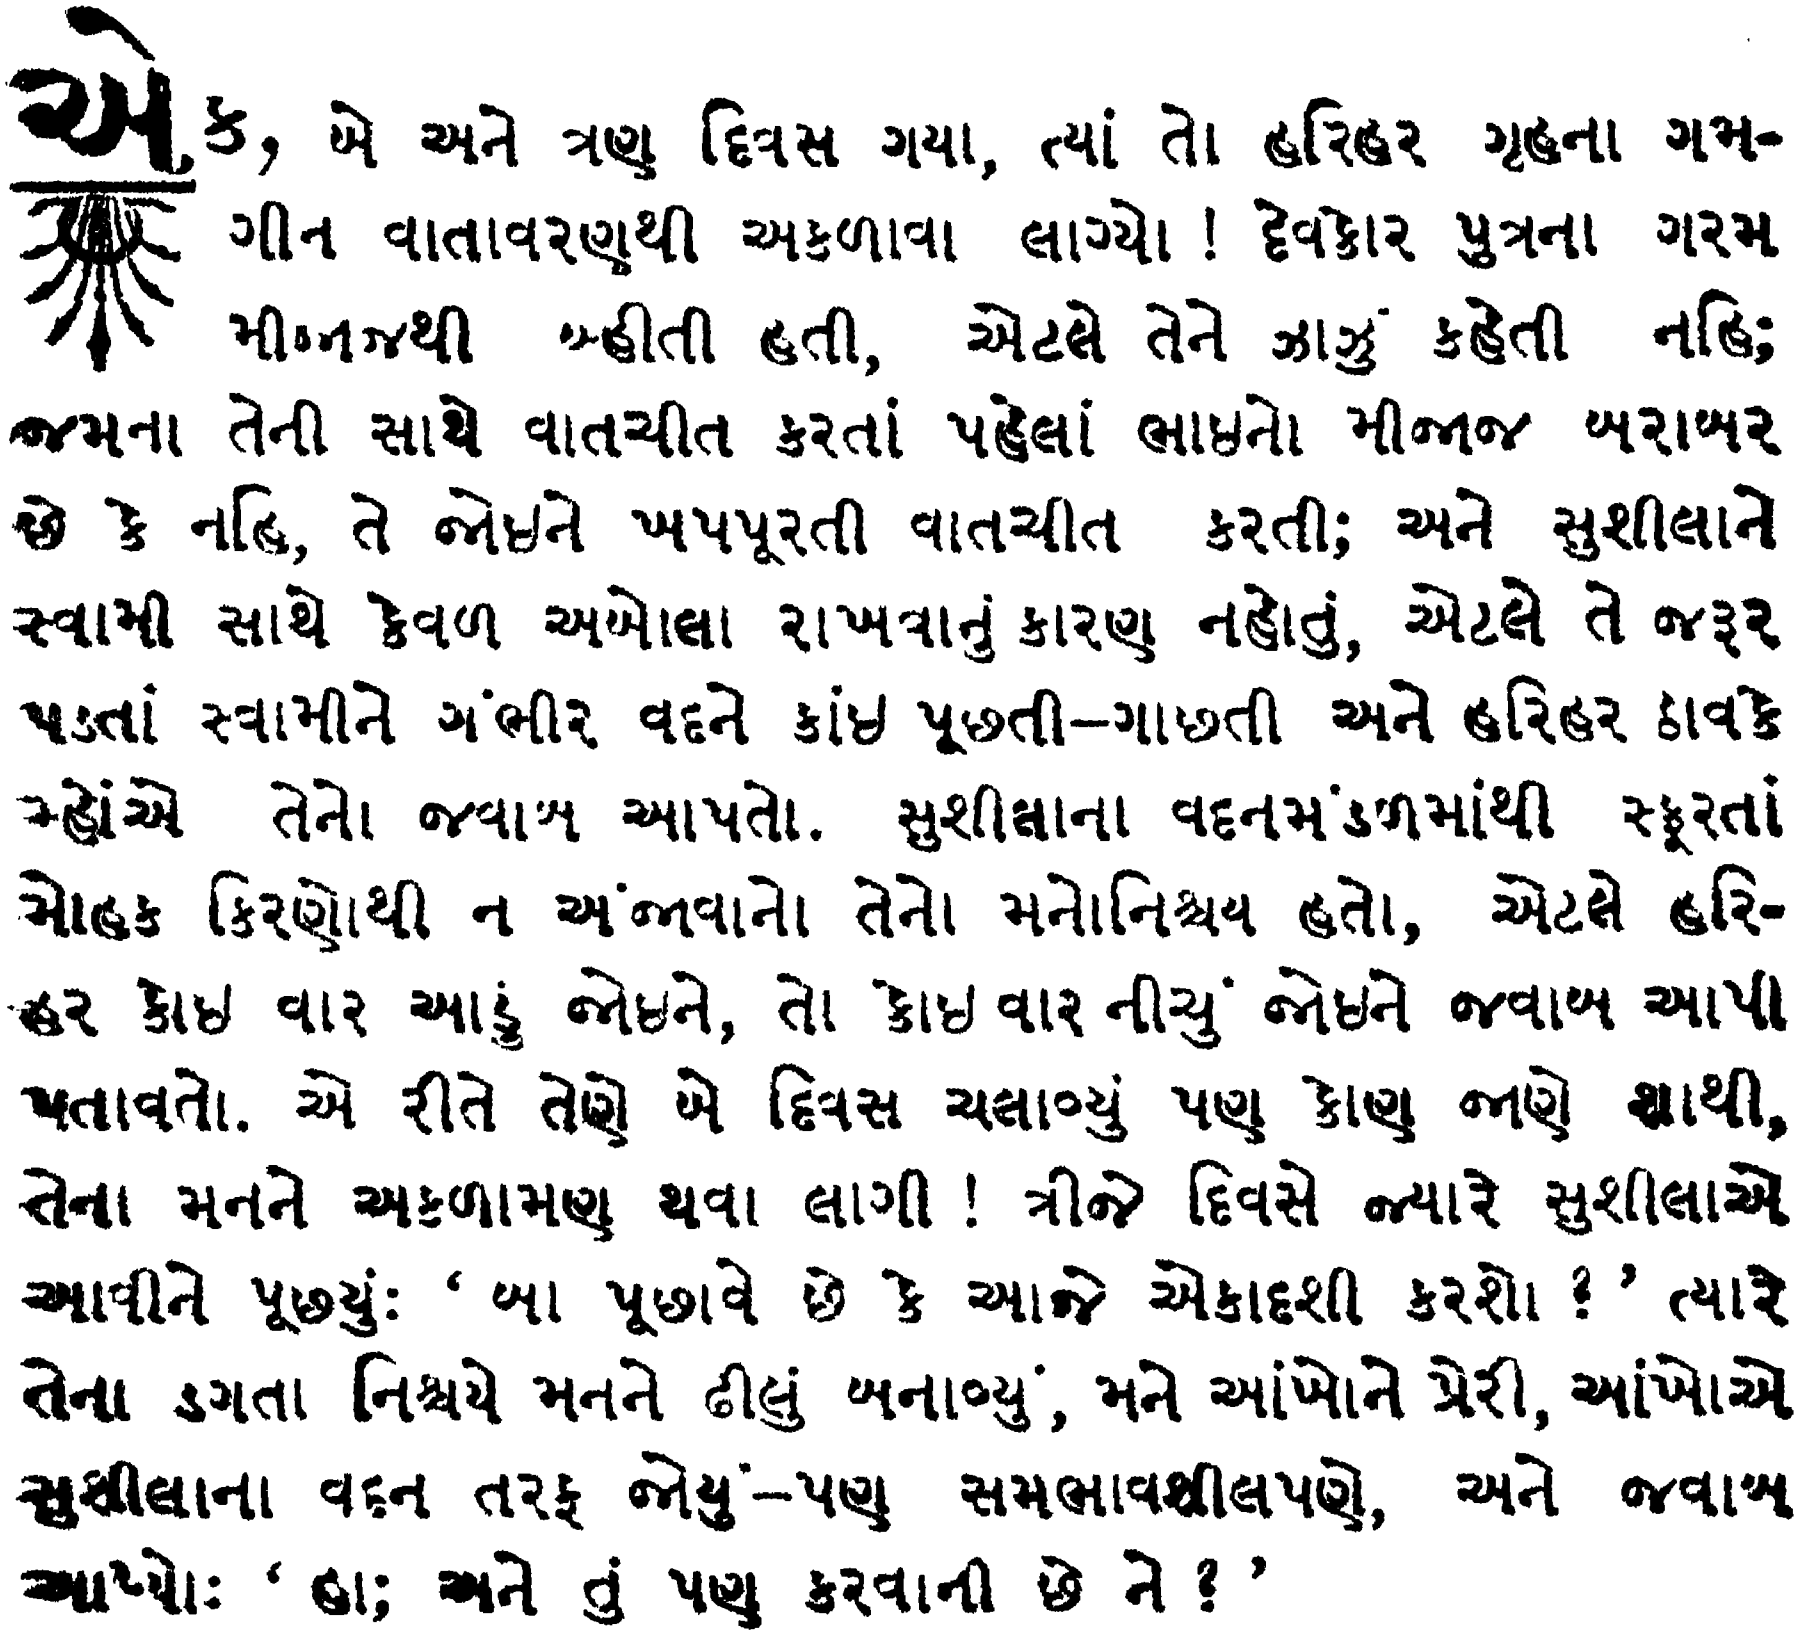 એક, બે અને ત્રણ દિવસ ગયા, ત્યાં તો હરિહર ગૃહના ગમ-
ગીન વાતાવરણથી અકળાવા લાગ્યો ! દેવકોર પુત્રના ગરમ
મીજાજથી બ્હીતી હતી, એટલે તેને ઝાઝું કહેતી નહિ;
જમના તેની સાથે વાતચીત કરતાં પહેલાં ભાઇનો મીજાજ બરાબર
છે કે નહિ, તે જોઇને ખપપૂરતી વાતચીત કરતી; અને સુશીલાને
સ્વામી સાથે કેવળ અબોલા રાખવાનું કારણ નહોતું, એટલે તે જરૂર
પડતાં સ્વામીને ગંભીર વદને કાંઇ પૂછતી–ગાછતી અને હરિહર ઠાવકે
મ્હોંએ તેનો જવાબ આપતો. સુશીલાના વદનમંડળમાંથી સ્ફૂરતાં
મોહક કિરણોથી ન અંજાવાનો તેનો મનોનિશ્ચય હતો, એટલે હરિ-
હર કોઇ વાર આડું જોઇને, તો કોઇ વાર નીચું જોઇને જવાબ આપી
પતાવતો. એ રીતે તેણે બે દિવસ ચલાવ્યું પણ કોણ જાણે શાથી,
તેના મનને અકળામણ થવા લાગી ! ત્રીજે દિવસે જ્યારે સુશીલાએ
આવીને પૂછ્યું: ‘ બા પૂછાવે છે કે આજે એકાદશી કરશો ? ’ ત્યારે
તેના ડગતા નિશ્ચયે મનને ઢીલું બનાવ્યું, મને આંખોને પ્રેરી, આંખોએ
સુશીલાના વદન તરફ જોયું–પણ સમભાવશીલપણે, અને જવાબ
આપ્યો: ‘ હા; અને તું પણ કરવાની છે ને ? ’